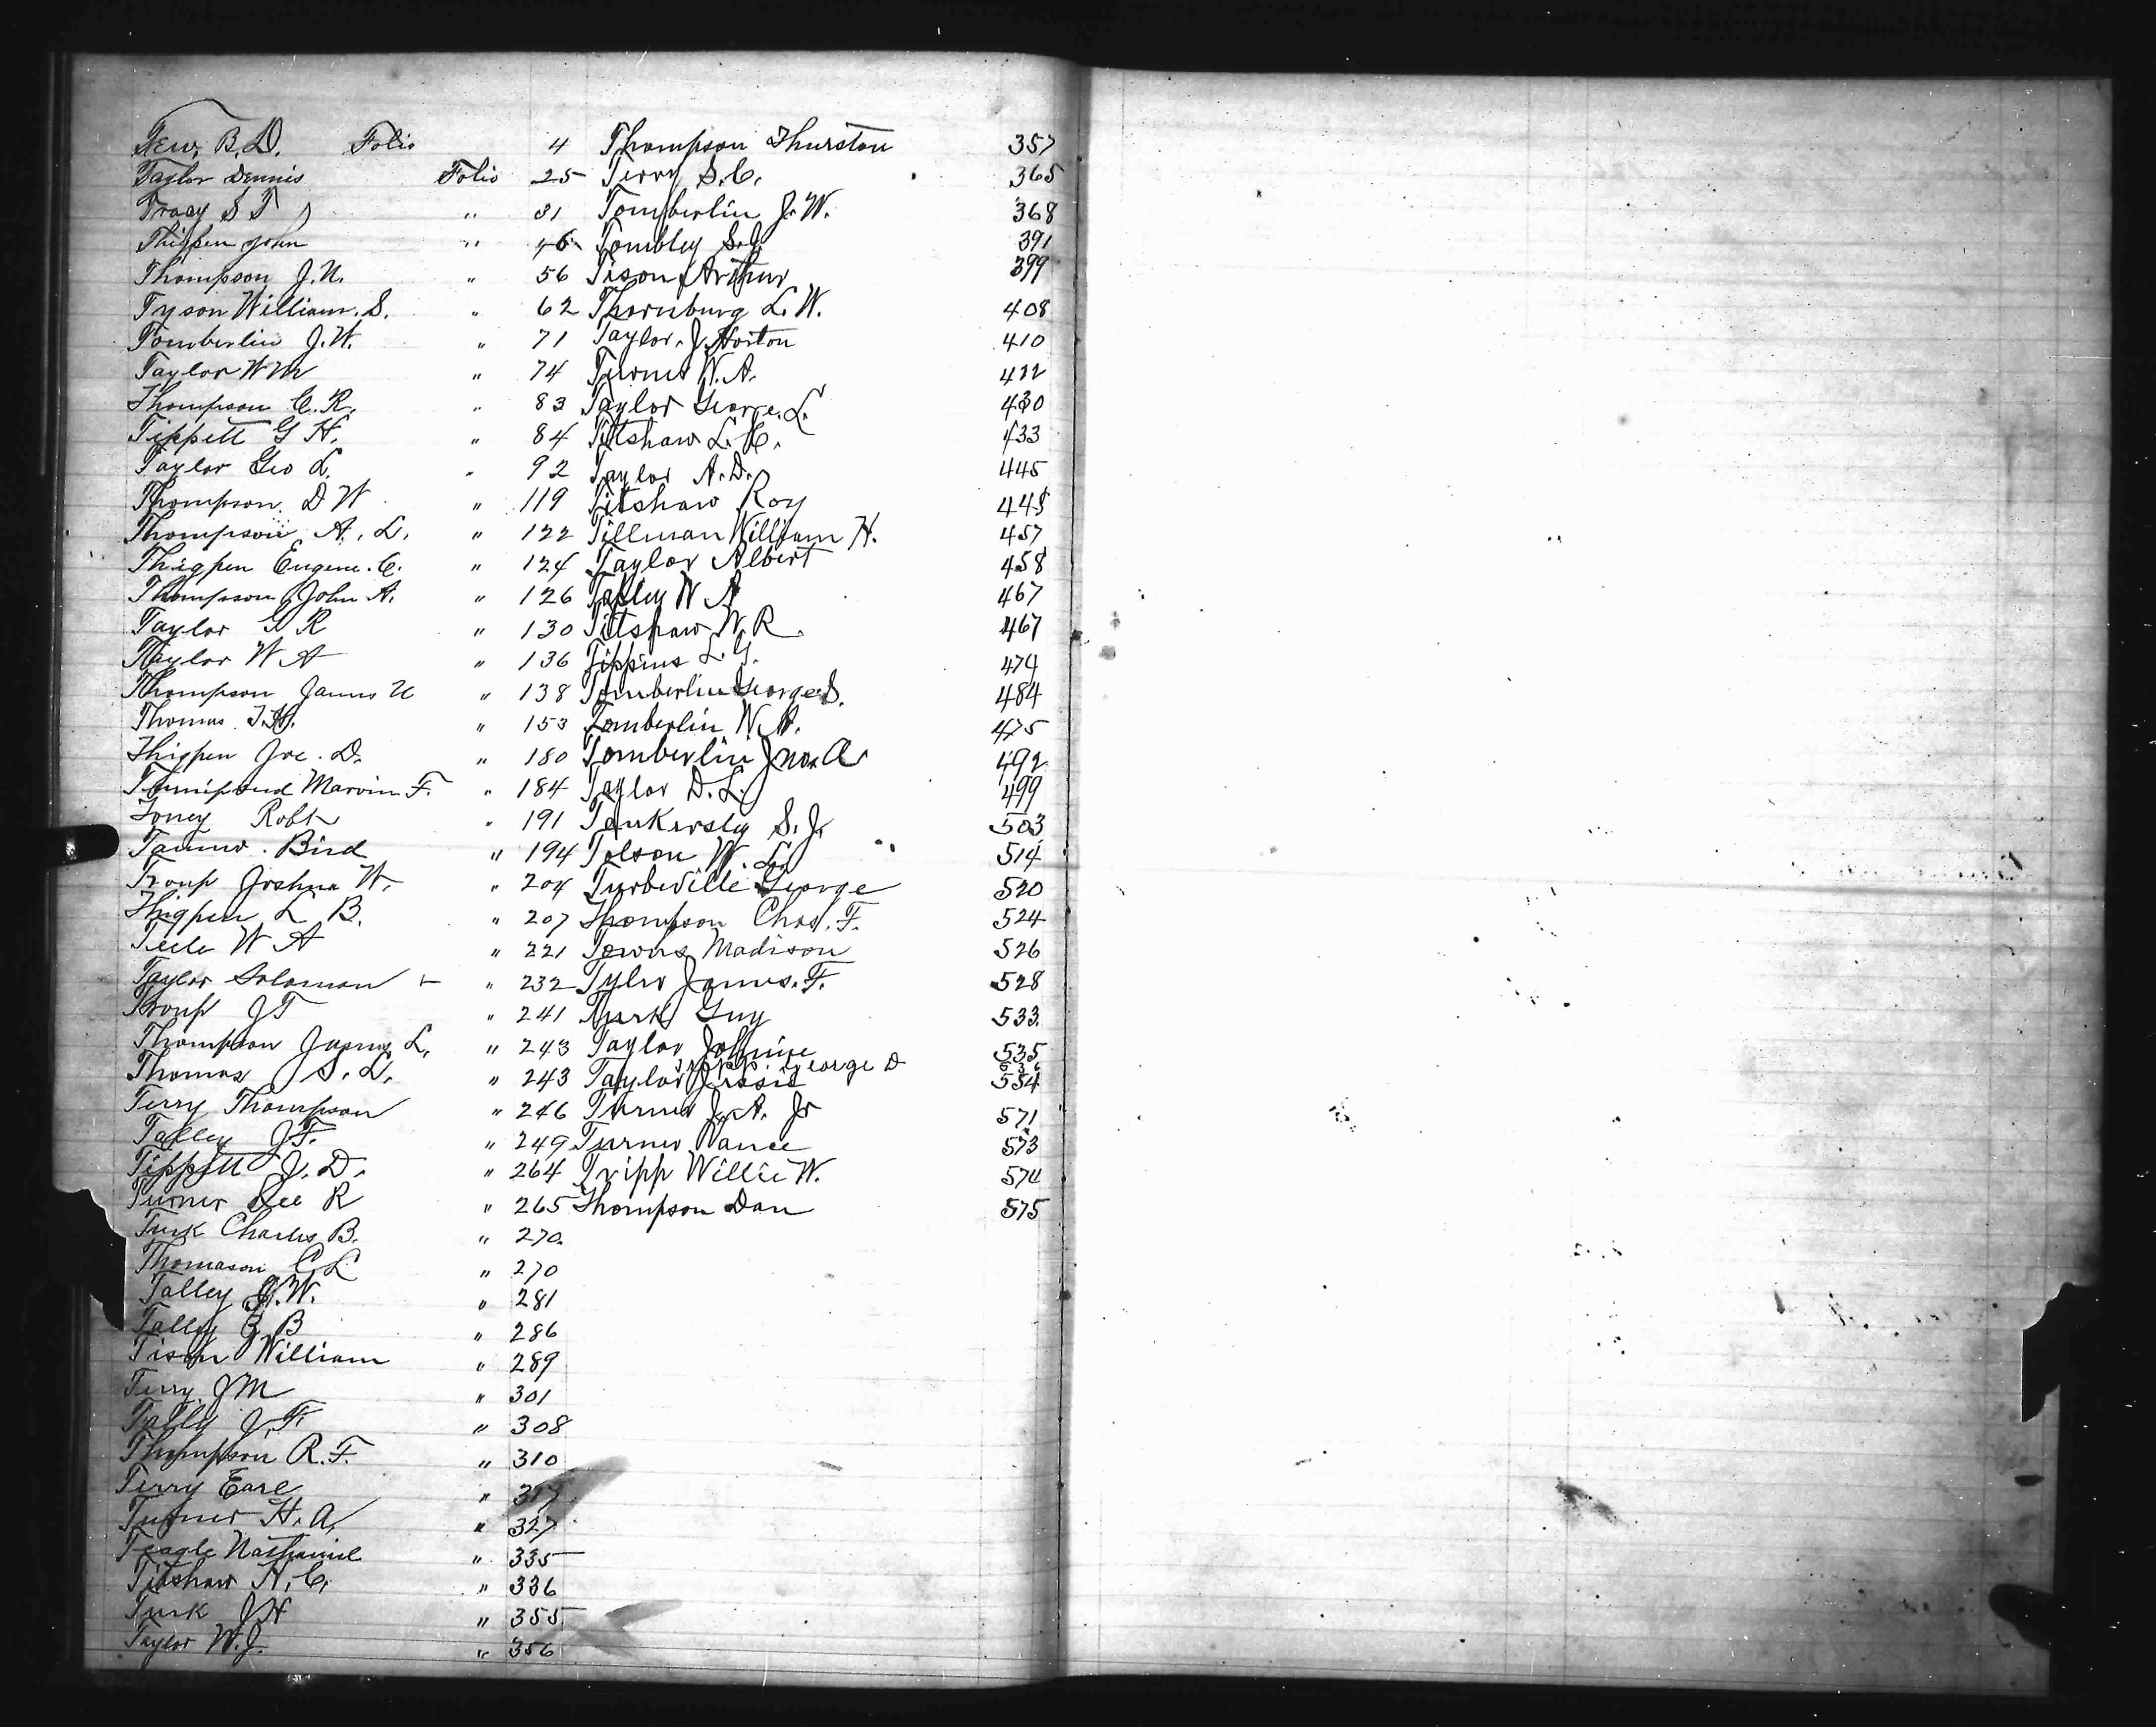 Tew, B. D. Folio 4
Taylor Dennis Folio 25
Tracy S T " 31
Thigpen John " 46
Thompson J. N. " 56
Tyson William. S. " 62
Tomberlin J. W. " 71
Taylor Wm " 74
Thompson C. R. " 83
Tippett G H. " 84
Taylor Geo L. " 92
Thompson. D W " 119
Thompson A. L. " 122
Thigpen Eugene. C. " 124
Thompson John A. " 126
Taylor G R " 130
Taylor W A " 136
Thompson James U " 138
Thomas J. H. " 153
Thigpen Joe. D. " 180
Marvin F. " 184
Toney Robt " 191
Tanner. Bird " 194
Troup Joshua W. " 204
Thigpen L B. " 207
Teele W A " 221
Taylor Solomon " 232
Troup J T " 241
Thompson James L. " 243
Thomas J S. L. " 243
Terry Thompson " 246
Talley J F. " 249
Tippett J. D. " 264
Turner Lee R " 265
Turk Charles B. " 270.
Thomason C L " 270
Talley J. W. " 281
Talley B " 286
Tison William " 289
Terry J M " 301
Tally J. F. " 308
Thompson R. F. " 310
Terry Earl "
Turner H. A. " 327
Teagle Nathaniel " 335
Titshaw A. C. " 336
Turk J H " 355
Taylor W. J. " 356
Thompson Thurston 357
Terry S. C. 365
Tomberlin J. W. 368
Tombley 391
Tison Arthur 399
Thornburg L. W. 408
Taylor. J. Horton 410
Turner W. A. 422
Taylor George. L. 430
Titshaw L. H. 433
Taylor A. D. 445
Titshaw Roy 448
Tillman William H. 457
Taylor Albert 458
Talley W A 467
Titshaw W R. 467
Tippins L. G. 474
Tomberlin George S. 484
Tomberlin W. A. 475
Tomberlin Jno. A 492
Taylor D. L. 499
Tankersly S. J. 503
Tolson W. L. 514
Turbeville George 520
Thompson Chas. F. 524
Towns Madison 526
Tyler James. F. 528
Turk Guy 533
Taylor Johnnie 535
Tripp George D 536
Taylor Jessie 554
Turner J. A. Jr 571
Turner Vance 573
Tripp Willie W. 574
Thompson Dan 575